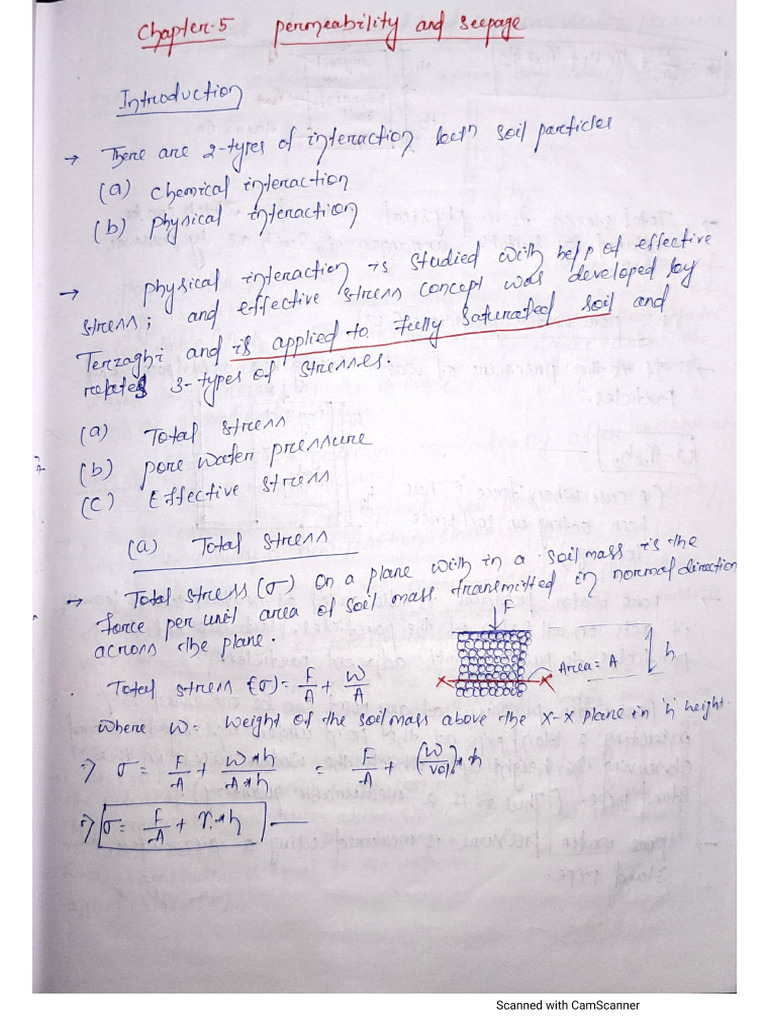 Chapter-5 permeability and seepage
Introduction
→ There are 2-types of interaction betn soil particles
(a) chemical interaction
(b) physical interaction
→ physical interaction is studied with help of effective
stress; and effective stress concept was developed by
Terzaghi and is applied to fully saturated soil and
relates 3-types of stresses.
(a) Total stress
(b) pore water pressure
(c) Effective stress
(a) Total stress
→ Total stress (σ) on a plane with in a soil mass is the
force per unit area of soil mass transmitted in normal direction
across the plane.
F
Total stress (σ) = F/A + W/A
X X Area = A h
where W = weight of the soil mass above the X-X plane in 'h' height.
⇒ σ = F/A + W*h/A*h = F/A + (W/vol)*h
⇒ σ = F/A + γ*h
Scanned with CamScanner